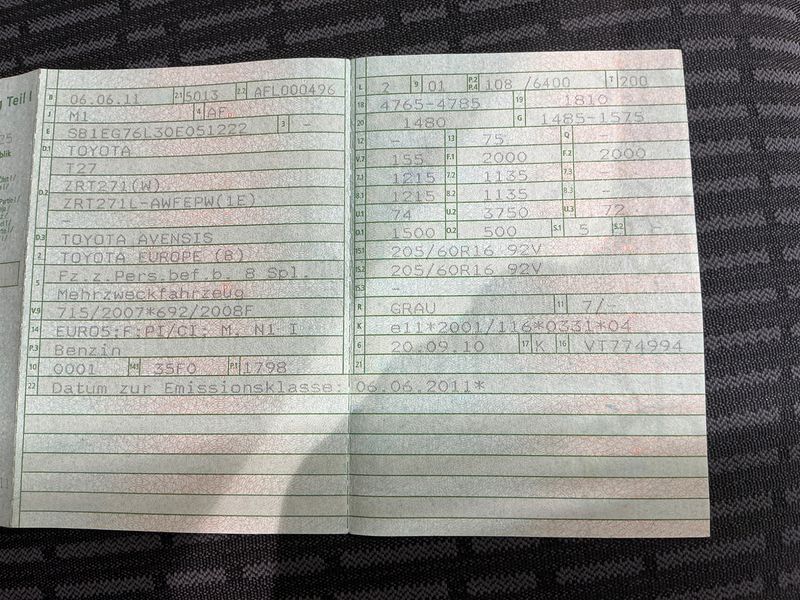 Teil I
B 06.06.11 2.1 5013 2.2 AFL000496
J M1 4 AF
E SB1EG76L30E051222 3 -
D.1 TOYOTA
T27
D.2 ZRT271(W)
ZRT271L-AWFEPW(1E)
-
D.3 TOYOTA AVENSIS
2 TOYOTA EUROPE (B)
5 Fz.z.Pers.bef.b. 8 Spl.
Mehrzweckfahrzeug
V.9 715/2007*692/2008F
14 EURO5;F;PI/CI; M, N1 I
P.3 Benzin
10 0001 14.1 35F0 P.1 1798
22 Datum zur Emissionsklasse: 06.06.2011*
L 2 9 01 P.2 P.4 108 /6400 T 200
18 4765-4785 19 1810
20 1480 G 1485-1575
12 - 13 75 Q -
V.7 155 F.1 2000 F.2 2000
7.1 1215 7.2 1135 7.3 -
8.1 1215 8.2 1135 8.3 -
U.1 74 U.2 3750 U.3 72
O.1 1500 O.2 500 S.1 5 S.2 -
15.1 205/60R16 92V
15.2 205/60R16 92V
15.3 -
R GRAU 11 7/-
K e11*2001/116*0331*04
6 20.09.10 17 K 16 VT774994
21